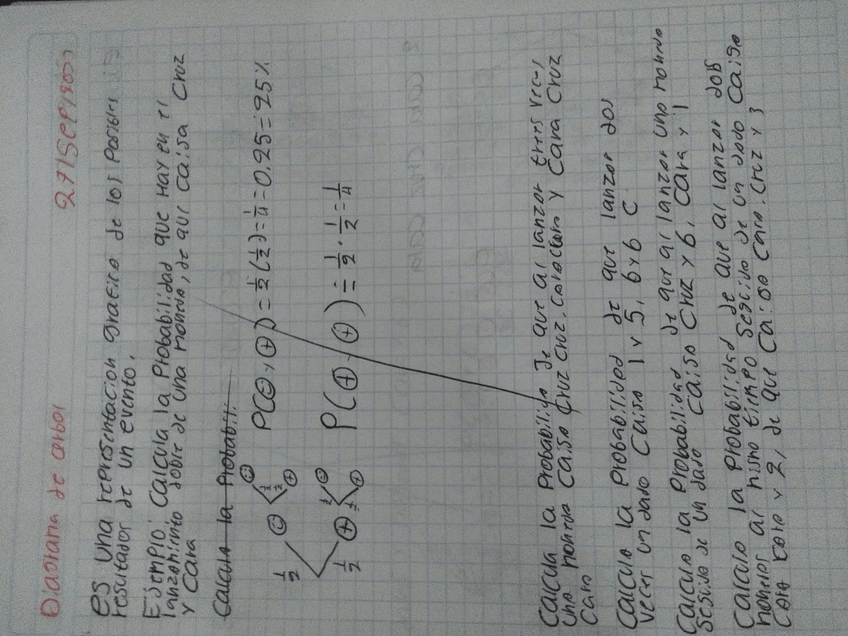 Diagrama de arbol 27/SEP/2021
es una representacion grafica de los posibles
resultados de un evento.
Ejemplo: Calcula la Probabilidad que hay en el
lanzamiento doble de una moneda, de que caiga Cruz
y Cara
Calcula la Probabili
1/2 1/2 1/2 P( , + ) = 1/2 (1/2) = 1/4 = 0.25 = 25%
1/2 + 1/2 1/2 + P( + , + ) = 1/2 . 1/2 = 1/4
Calcula la Probabilida de que al lanzar tres veces
una moneda caiga cruz cruz, cara cara y Cara Cruz
Cara
Calcula la Probabilidad de que lanzar dos
veces un dado Caiga 1 y 5, 6 y 6 C
Calcula la Probabilidad de que al lanzar una moneda
seguido de un dado caiga Cruz y 6, cara y 1
Calcula la Probabilidad de que al lanzar dos
monedas al mismo tiempo seguido de un dado Caiga
Cara cara y 2, de que Caiga Cara, Cruz y 3